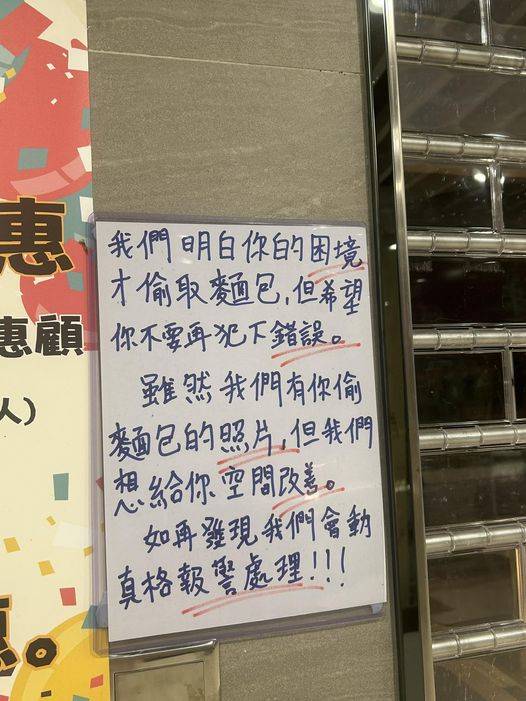 惠
惠顧
人)
惠。
我們明白你的困境
才偷取麵包,但希望
你不要再犯下錯誤。
雖然我們有你偷
麵包的照片,但我們
想給你空間改善。
如再發現我們會動
真格報警處理!!!